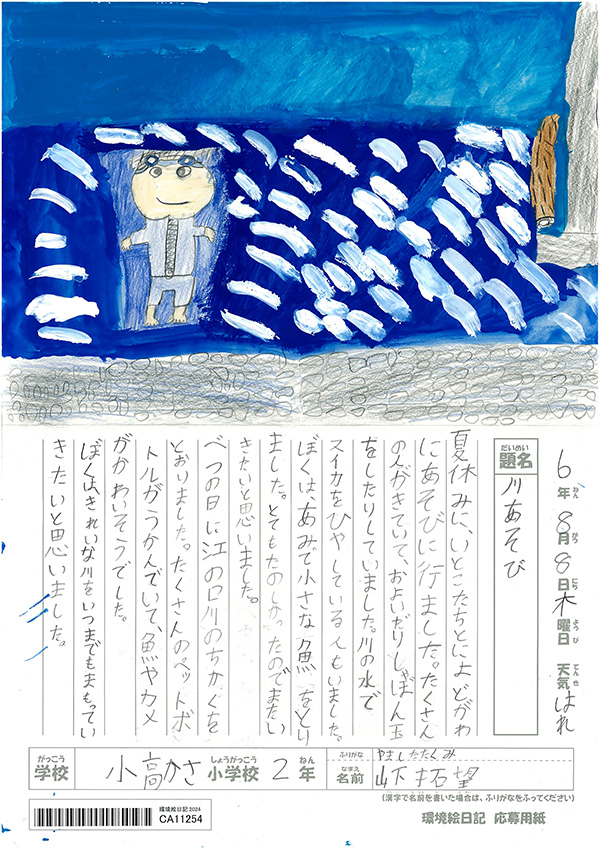 6年8月8日木曜日 天気 はれ
ねん がつ にち ようび てんき
だいめい
題名
川あそび
夏休みに、いとこたちとによどがわ
にあそびに行ました。たくさん
の人がきていて、およいだりしゃぼん玉
をしたりしていました。川の水で
スイカをひやしている人もいました。
ぼくは、あみで小さな魚をとり
ました。とてもたのしかったのでまたい
きたいと思いました。
べつの日に江の口川のちかくを
とおりました。たくさんのペットボ
トルがうかんでいて、魚やカメ
がかわいそうでした。
ぼくは、きれいな川をいつまでもまもってい
きたいと思いました。
がっこう しょうがっこう ねん
学校 小高かさ 小学校 2年
ふりがな やましたたくみ
なまえ
名前 山下拓望
(漢字で名前を書いた場合は、ふりがなをふってください)
環境絵日記2024
CA11254
環境絵日記 応募用紙